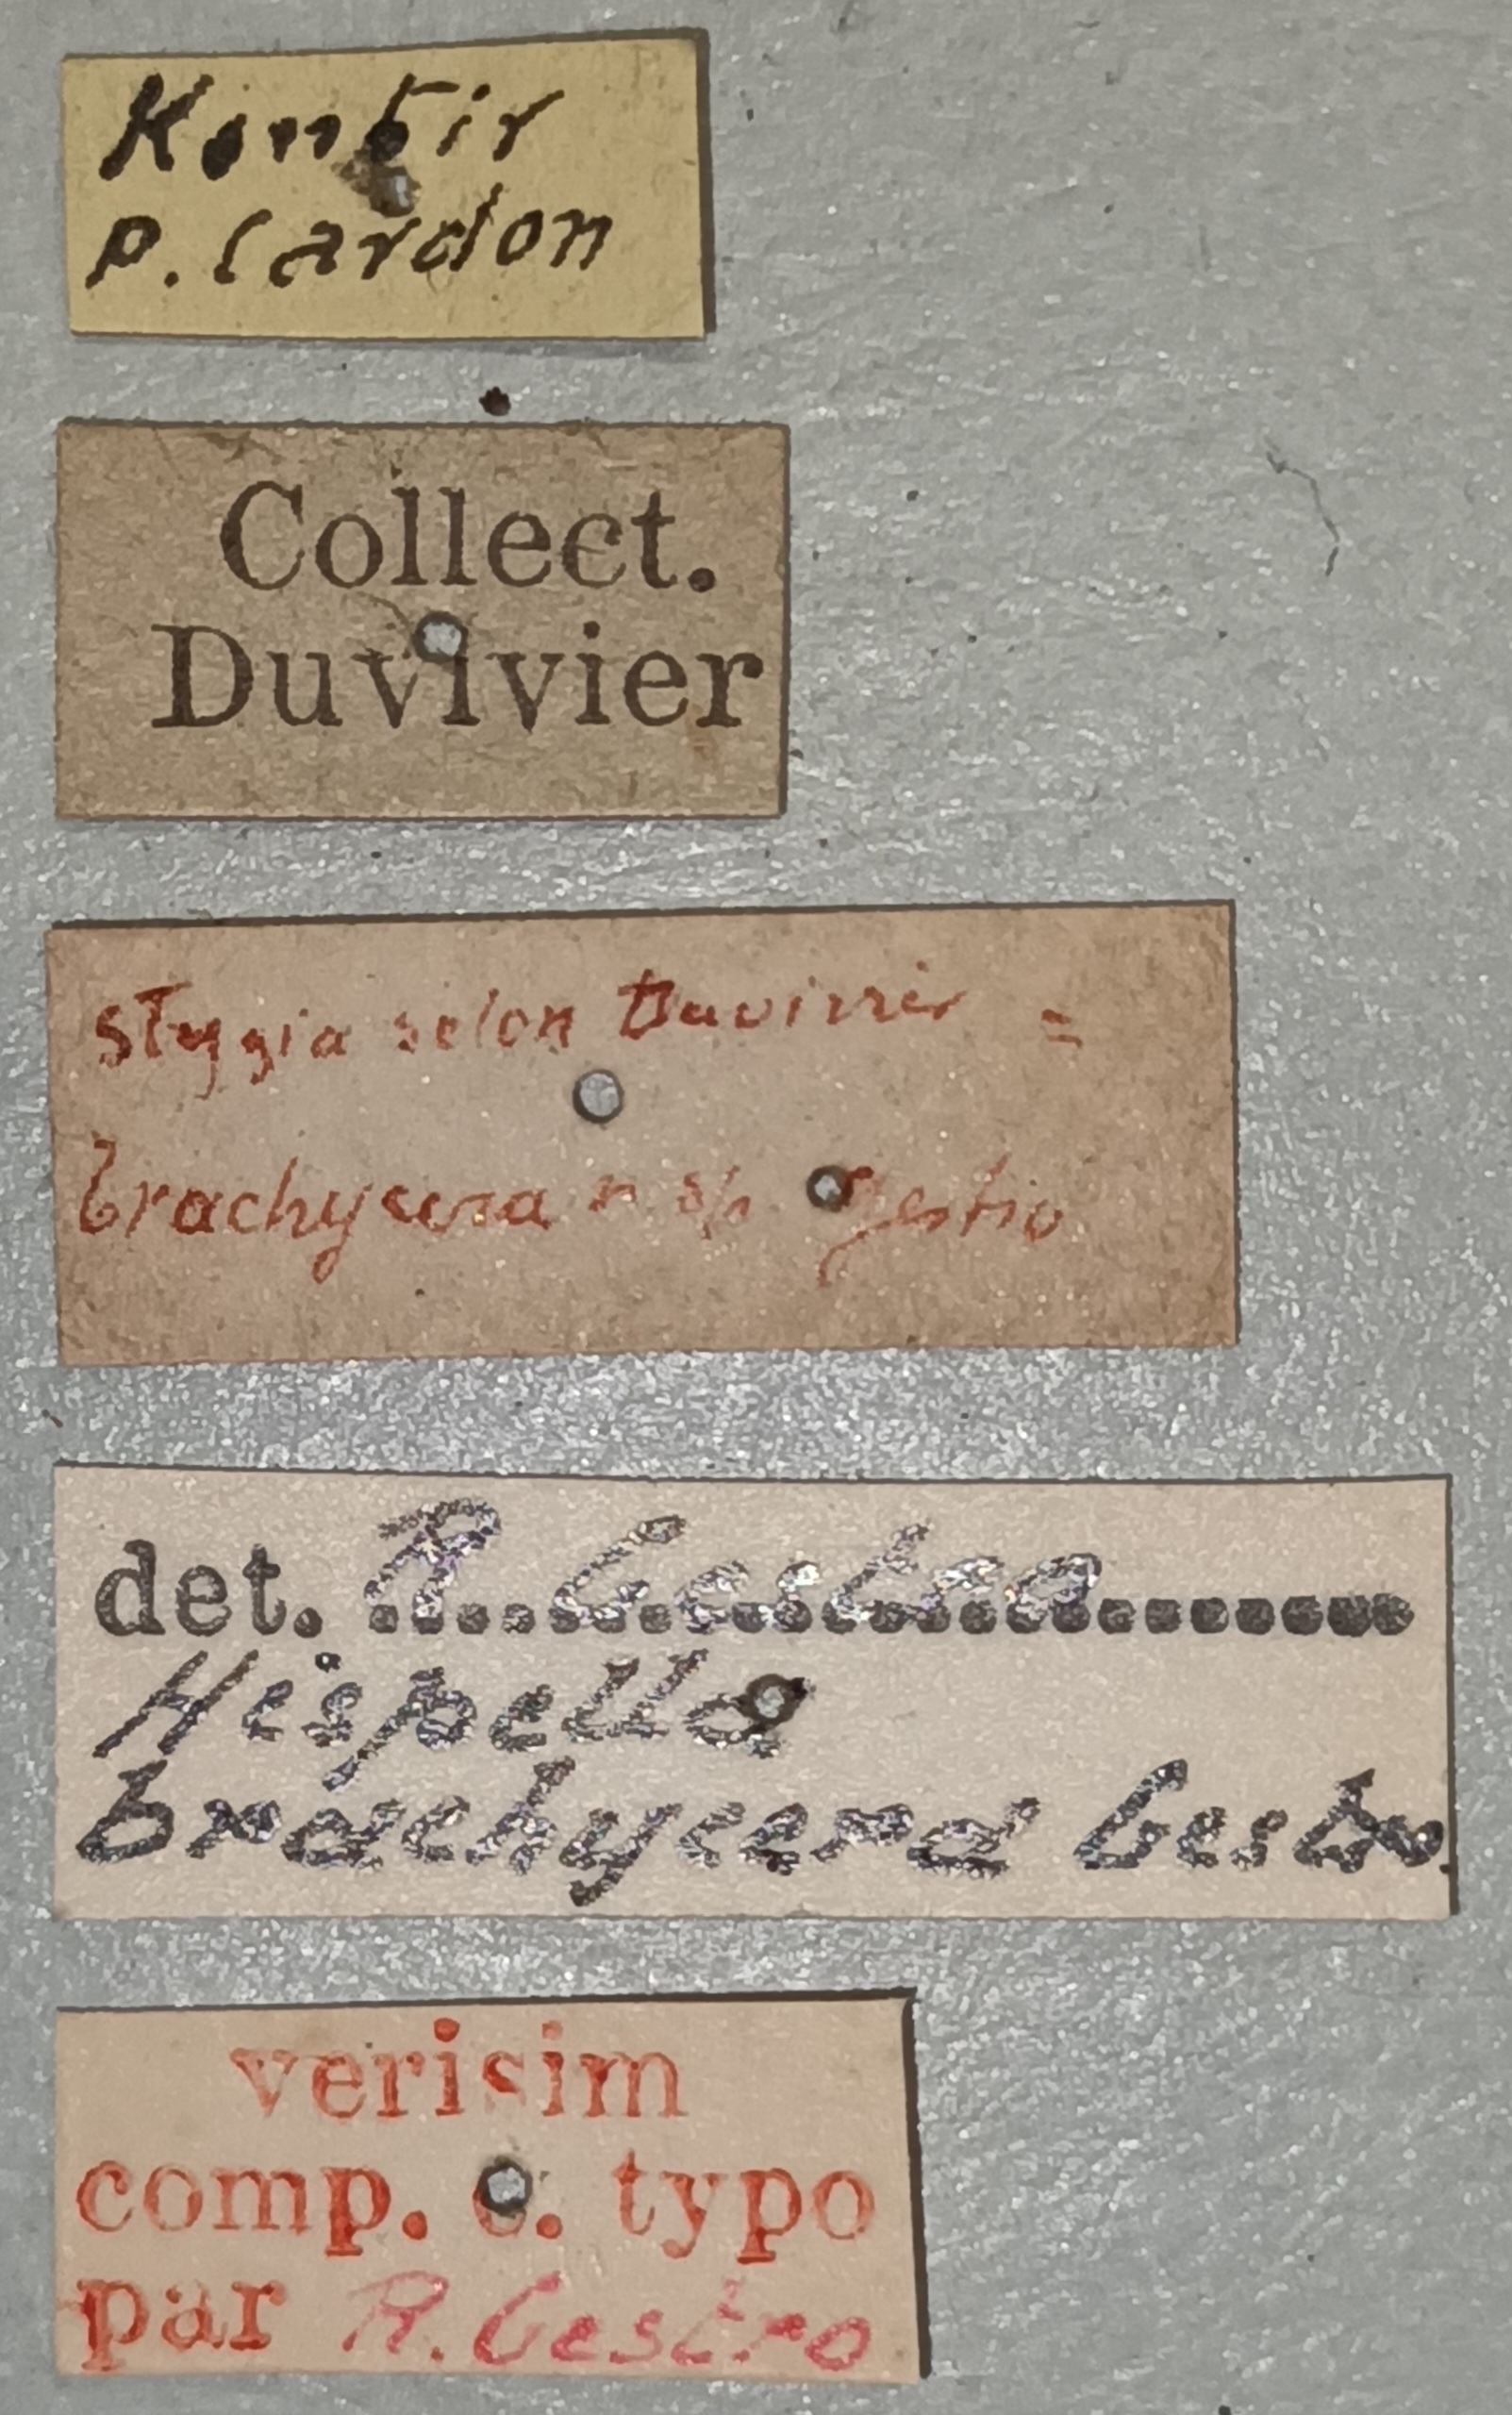 Konbir
P. Cardon
Collect.
Duvivier
stygia selon Duvivier =
brachycera n. sp. gestro
det. R. Gestro
Hispella
brachycera Gestro
verisim
comp. c. typo
par R. Gestro